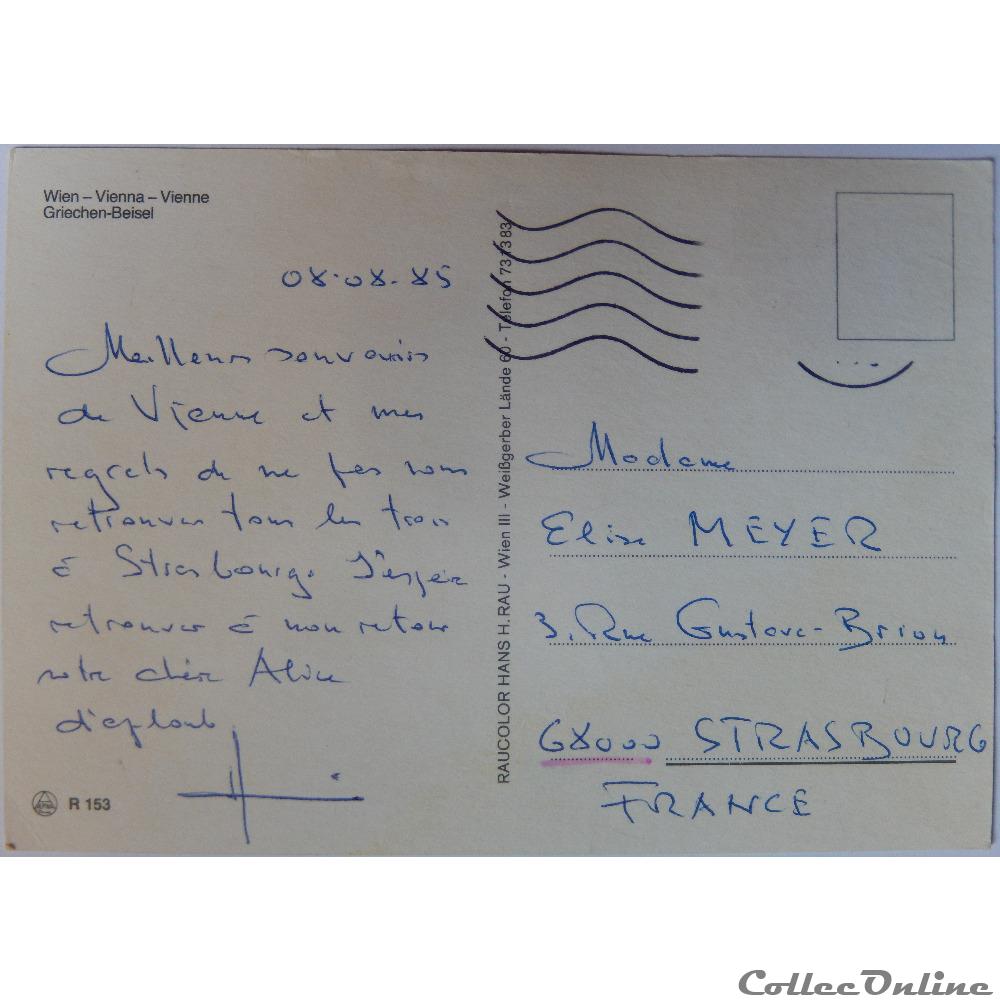 Wien – Vienna – Vienne
Griechen-Beisel
08.08.85
Meilleurs souvenirs
de Vienne et mes
regrets de ne pas nous
retrouver tous les trois
à Strasbourg. J'espère
retrouver à mon retour
notre chère Alice
d'aplomb
R 153
RAUCOLOR HANS H. RAU - Wien III - Weißgerber Lände 60 - Telefon 73 73 83
Madame
Elise MEYER
3, Rue Gustave-Brion
68000 STRASBOURG
FRANCE
CollecOnline